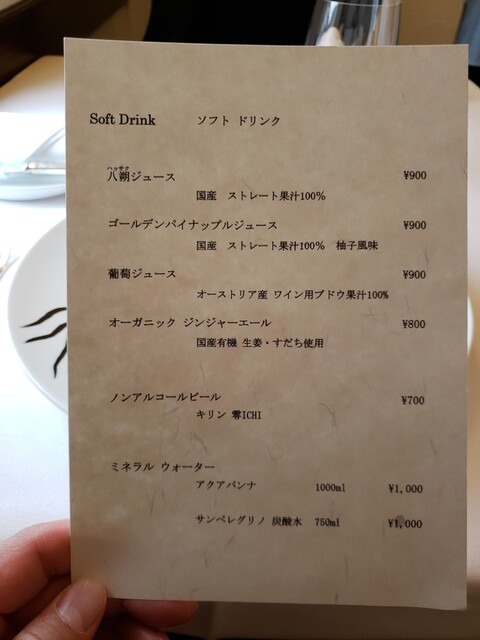 Soft Drink ソフト ドリンク
ハッサク
八朔ジュース ¥900
国産 ストレート果汁100%
ゴールデンパイナップルジュース ¥900
国産 ストレート果汁100% 柚子風味
葡萄ジュース ¥900
オーストリア産 ワイン用ブドウ果汁100%
オーガニック ジンジャーエール ¥800
国産有機 生姜・すだち使用
ノンアルコールビール ¥700
キリン 零ICHI
ミネラル ウォーター
アクアパンナ 1000ml ¥1,000
サンペレグリノ 炭酸水 750ml ¥1,000